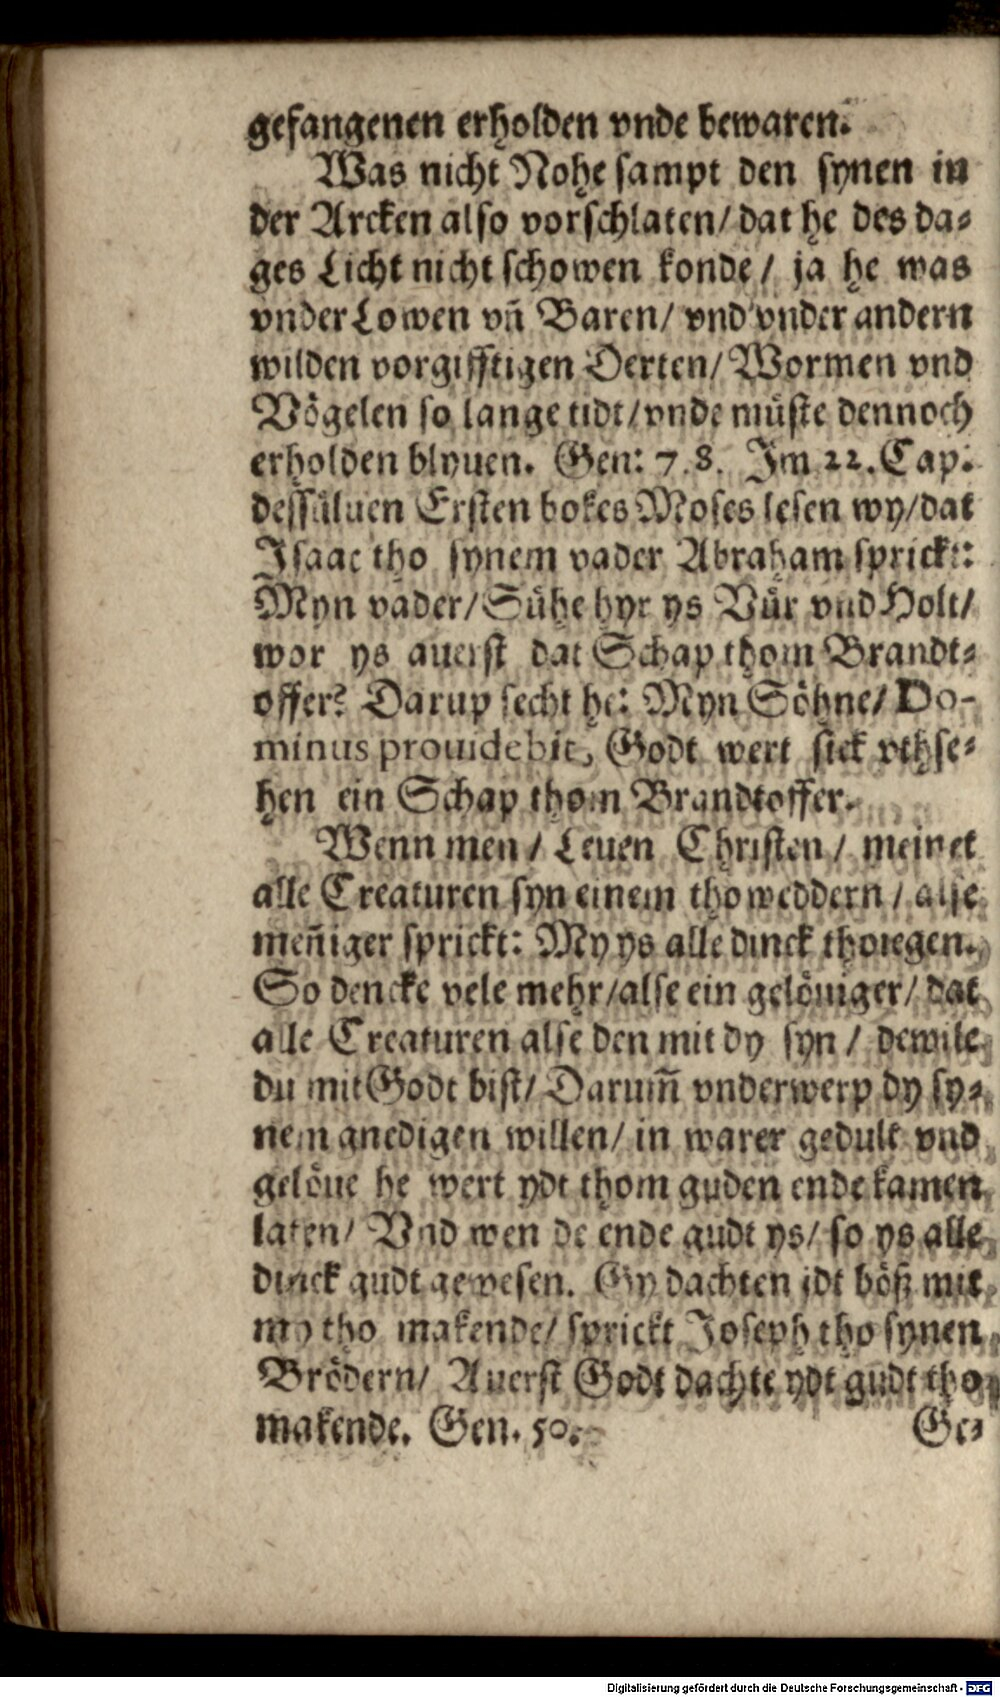 gefangenen erholden vnde bewaren.
Was nicht Nohe sampt den synen in
der Arcken also vorschlaten/ dat he des da-
ges Licht nicht schowen konde/ ja he was
vnder Lowen vñ Baren/ vnd vnder andern
wilden vorgifftigen Derten/ Wormen vnd
Vögelen so lange tidt/ vnde müste dennoch
erholden blyuen. Gen: 7. 8. Im 22. Cap.
dessüluen Ersten bokes Moses lesen wy/ dat
Isaac tho synem vader Abraham sprickt:
Myn vader/ Sühe hyr ys Vür vnd Holt/
wor ys auerst dat Schap thom Brandt-
offer? Darup secht he: Myn Söhne/ Do-
minus prouidebit, Godt wert sick vthse-
hen ein Schap thom Brandtoffer.
Wenn men/ Leuen Christen/ meinet
alle Creaturen syn einem thoweddern/ alse
meñiger sprickt: My ys alle dinck thoiegen.
So dencke vele mehr/ alse ein gelöuiger/ dat
alle Creaturen alse den mit dy syn/ dewile
du mit Godt bist/ Darum̃ vnderwerp dy sy-
nem gnedigen willen/ in warer gedult vnd
gelöue he wert ydt thom guden ende kamen
laten/ Vnd wen de ende gudt ys/ so ys alle
dinck gudt gewesen. Gy dachten idt böß mit
my tho makende/ sprickt Joseph tho synen
Brödern/ Auerst Godt dachte ydt gudt tho
makende. Gen. 50.
Ge-
Digitalisierung gefördert durch die Deutsche Forschungsgemeinschaft - DFG